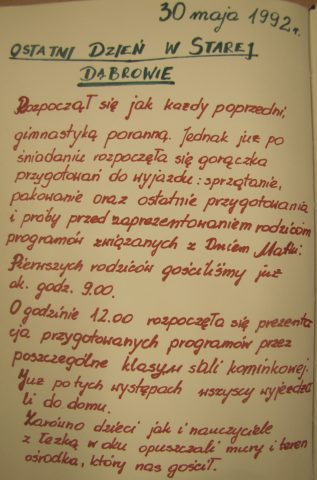 30 maja 1992r.
OSTATNI DZIEŃ W STAREJ
DĄBROWIE
Rozpoczął się jak każdy poprzedni,
gimnastyką poranną. Jednak już po
śniadaniu rozpoczęła się gorączka
przygotowań do wyjazdu: sprzątanie,
pakowanie oraz ostatnie przygotowania
i próby przed zaprezentowaniem rodzicom
programów związanych z Dniem Matki.
Pierwszych rodziców gościliśmy już
ok. godz. 9.00.
O godzinie 12.00 rozpoczęła się prezenta
cja przygotowanych programów przez
poszczególne klasy w sali kominkowej.
Już po tych występach wszyscy wyjeżdża
li do domu.
Zarówno dzieci jak i nauczyciele
z łezką w oku opuszczali mury i teren
ośrodka, który nas gościł.